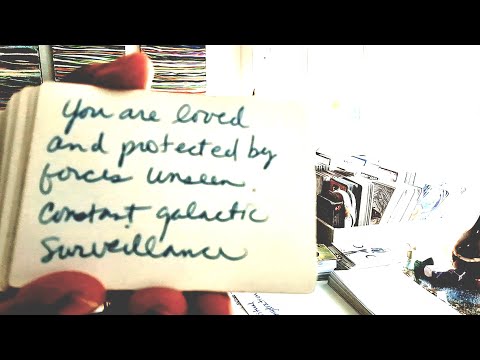 You are loved
and protected by
forces unseen.
Constant galactic
Surveillance